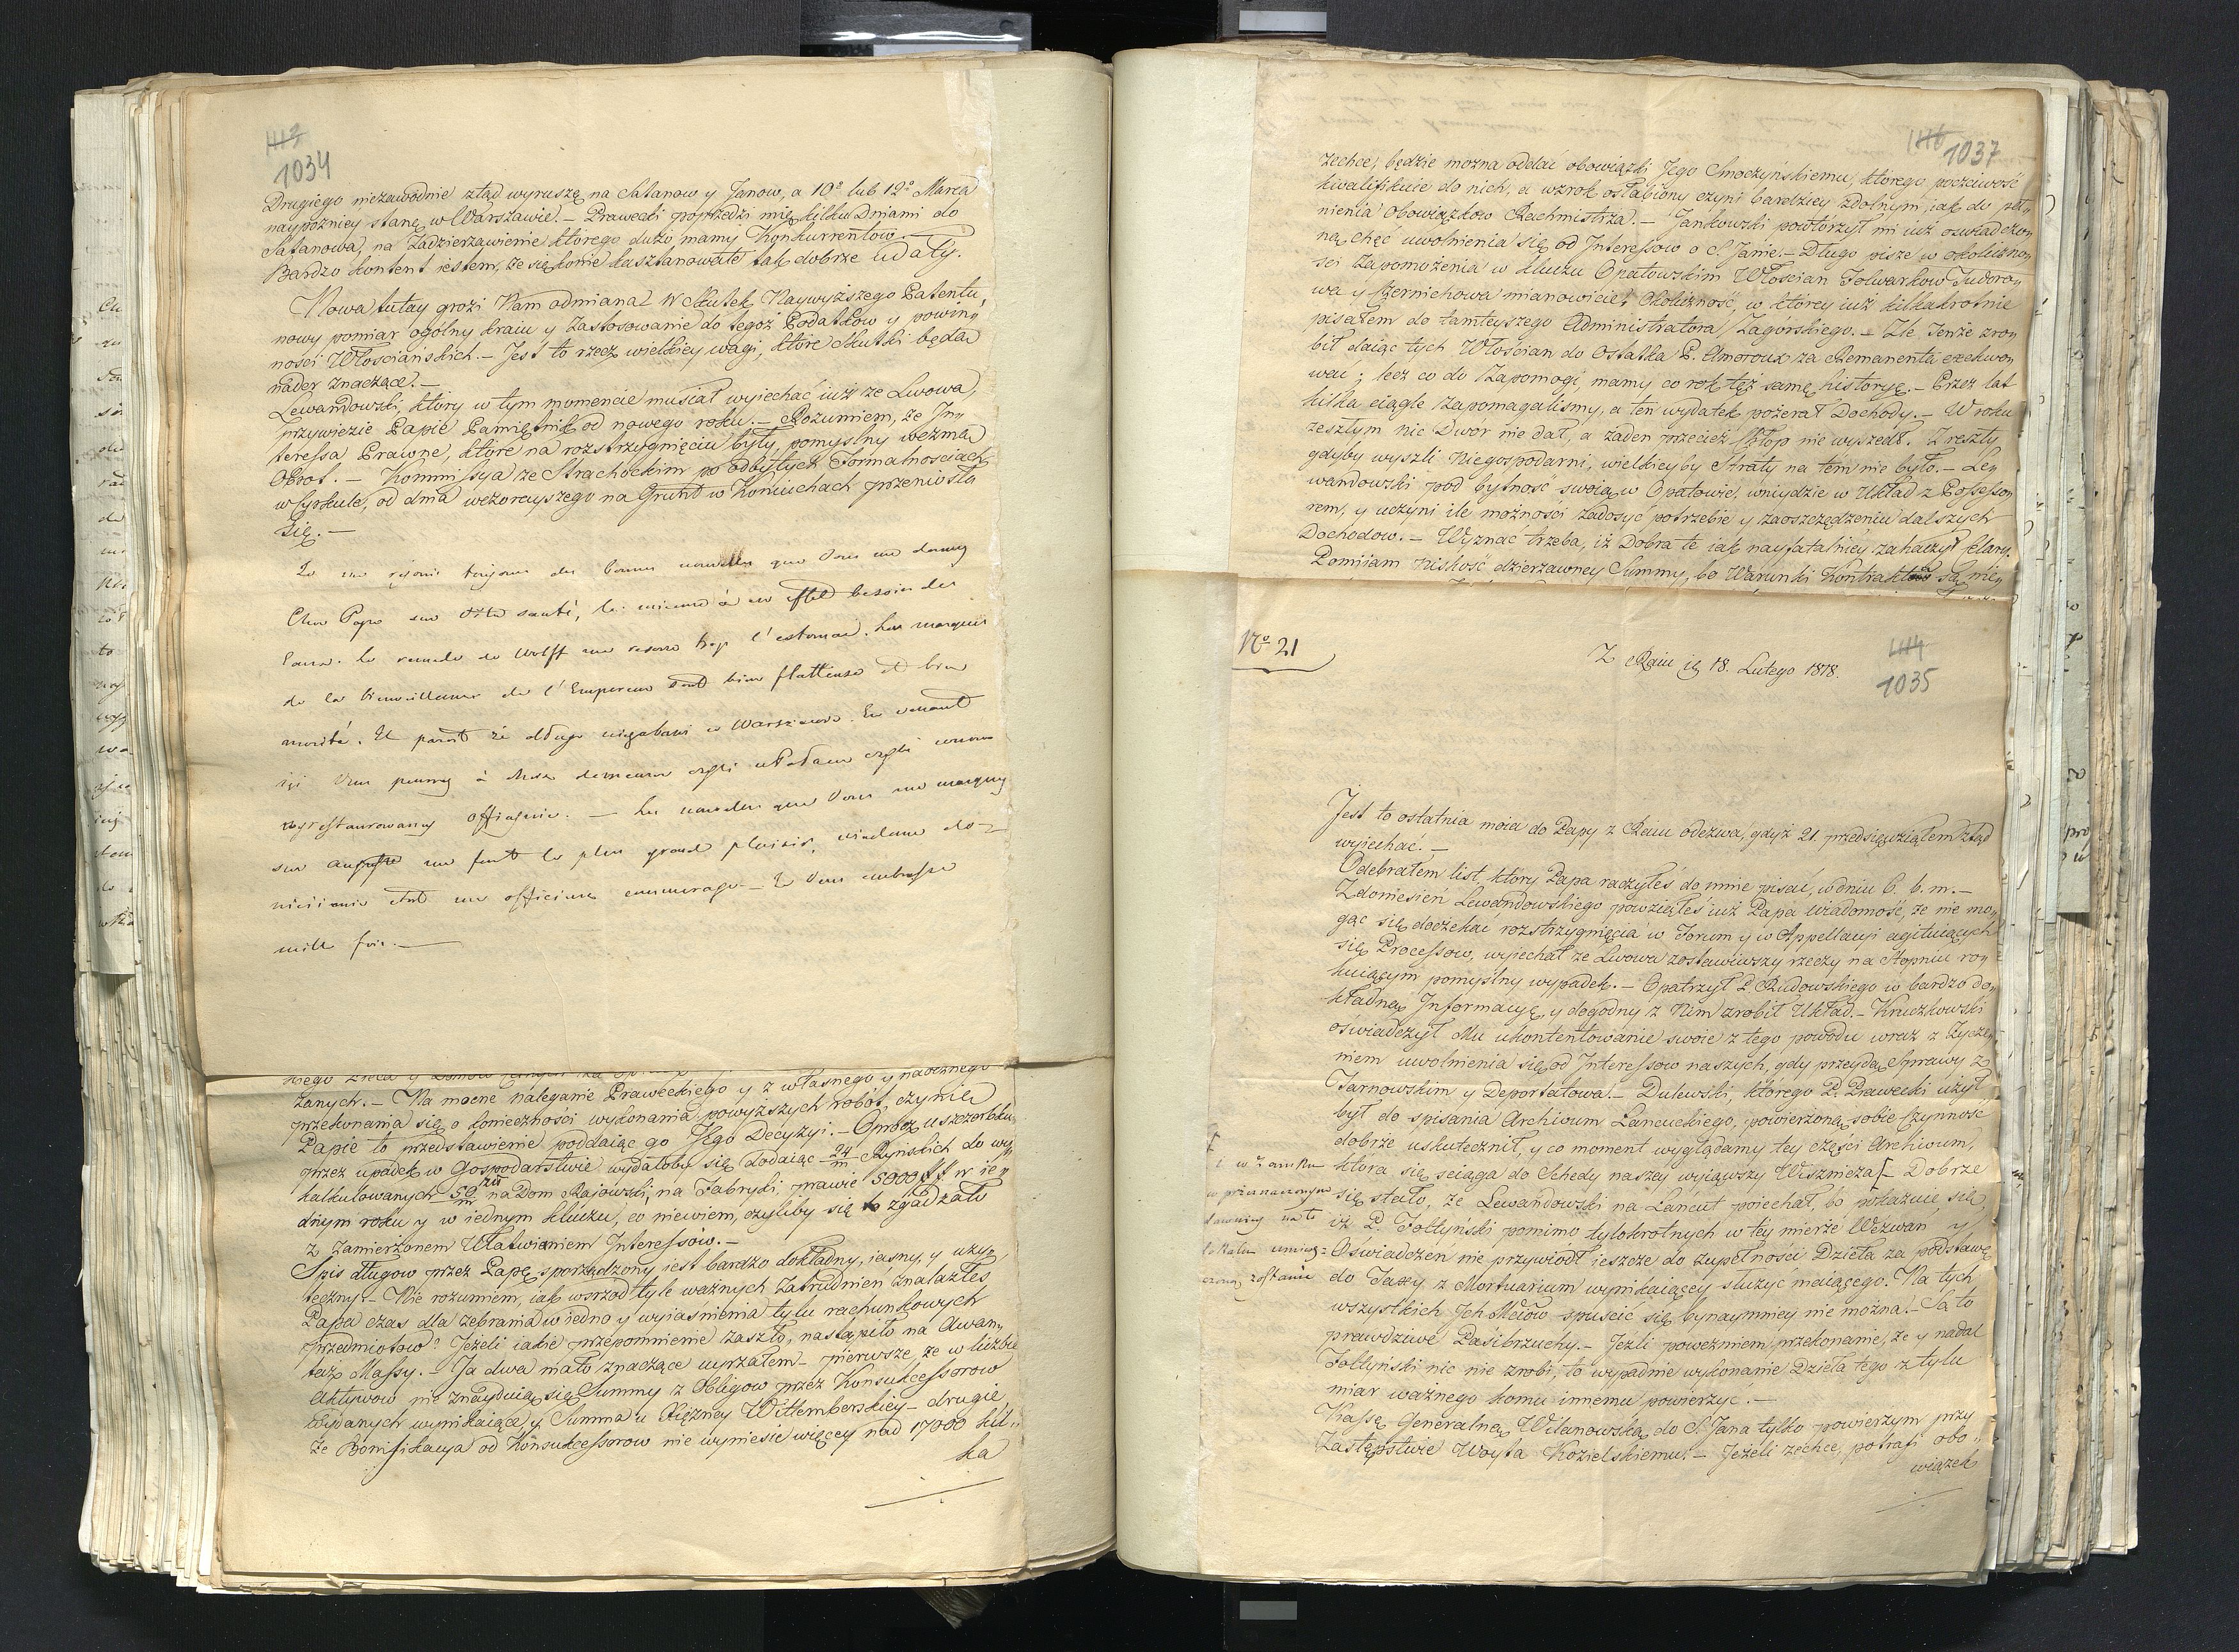 1034
Drugiego niezawodnie ztąd wyruszę na Satanow y Janow, a 10º lub 12º Marca
naypozniey stanę w Warszawie. — Prawecki poprzedzi mię kilku Dniami do
Satanowa, na Zadzierżawienie którego dużo mamy Konkurrentow. —
Bardzo kontent iestem, że się konie kasztanowate tak dobrze udały.
Nowa tutay grozi Nam odmiana. W skutek Naywyższego Patentu,
nowy pomiar ogólny kraiu y zastosowanie do tegoż Podatkow y powin„
ności Włościańskich. — Jest to rzecz wielkiey wagi, które skutki będą
nader znaczące. —
Lewandowski, który w tym momencie musiał wyiechać iuż ze Lwowa,
przywiezie Papie Pamiętnik od nowego roku. — Rozumiem, że In„
teressa Prawne, które na rozstrzygnięciu były, pomyślny wezmą
Obrot. — Kommissya ze Strachockim po odbytych Formalnościach
w Cyrkule, od dnia wczorayszego na Grunt w Koniuchach przeniosła
się. —
Je me réjouis toujours des bonnes nouvelles que Vous me donnez
Cher Papa sur Votre santé, la mienne a en effet besoin des
Eaux. le remède de Wolff me resserre trop l'estomac. Les marques
de la bienveillance de l'Empereur sont bien flatteuse et bien
mérité. Il paroit że długo niezabawi w Warszawie. En venant
ici Vous pensez à Votre demeure czyli u Padam czyli
wyrestaurowaney officynie. — Les nouvelles que Vous me marquez
sur Auguste me font le plus grand plaisir, widome do=
niesienie est une officieuse encourage — Je Vous embrasse
mille fois. —
żanych. — Na mocne naleganie Praweckiego y z własnego y naocznego
przekonania się o konieczności wykonania powyższych robot, czynię
Papie to przedstawienie poddaiąc go Jego Decyzyi. — Oprocz uszczerbku
przez upadek w Gospodarstwie wydałoby się dodaiąc 24/m Ryńskich do wy„
kalkulowanych 50/m na Dom Raiowski, na Fabryki, prawie 5000 ## w ie„
dnym roku y w iednym kluczu, co niewiem, czyliby się to zgadzało
z zamierzonem Ułatwianiem Interessow. —
Spis długow przez Papę sporządzony iest bardzo dokładny, iasny, y uży„
teczny. — Nie rozumiem, iak wsrzod tyle ważnych Zatrudnien znalazłeś
Papa czas dla zebrania w iedno y wyiaśnienia tylu rachunkowych
przedmiotow? Jeżeli iakie przepomnienie zaszło, nastąpiło na Awan„
taż Massy. — Ja dwa mało znaczące uyrzałem — pierwsze, że w liczbie
Aktywow nie znayduią się Summy z Obligow przez Konsukcessorow
wydanych wynikaiące, y Summa u Xiężney Wittemberskiey — drugie,
że Bonifikacya od Konsukcessorow nie wyniesie więcey nad 17000 kil„
ka
1037
zechce, będzie można oddać obowiązki Jego Smoczyńskiemu, którego poczciwość
kwalifikuie do nich, a wzrok osłabiony czyni bardziey zdolnym, iak do peł„
nienia Obowiązkow Rachmistrza. — Jankowski powtórzył mi iuż oświadczo„
ną chęć uwolnienia się od Interessow o S. Janie. — Długo pisze w okoliczno„
ści Zapomożenia w kluczu Opatowskim Włościan Folwarkow Tudoro„
wa y Czerniechowa mianowicie. Okoliczność, w którey iuż kilkakrotnie
pisałem do tamteyszego Administratora Zagorskiego. — Źle Tenże zro„
bił daiąc tych Włościan do Ostatka P. Amoroux za Remanenta exekwo„
wać; lecz co do Zapomogi, mamy co rok też samę historyę. — Przez lat
kilka ciągle zapomagalismy, a ten wydatek pożerał Dochody. — W roku
zeszłym nic Dwor nie dał, a żaden przecież Chłop nie wyszedł. Z reszty
gdyby wyszli Niegospodarni, wielkieyby Straty na tém nie było. — Le„
wandowski pod bytność swoią w Opatowie, wniydzie w Układ z Possesso„
rem, y uczyni ile możności zadosyć potrzebie y zaoszczędzeniu dalszych
Dochodow. — Wyznać trzeba, iż Dobra te iak nayfatalniey zahaczył Clary.
Pomiiam niskość dzierżawney Summy, bo Warunki Kontraktu są nie„
Nº 21
Z Raiu ią 18. Lutego 1818.
1035
Jest to ostatnia moia do Papy z Raiu odezwa, gdyż 21. przedsięwziąłem ztąd
wyiechać. —
Odebrałem list, który Papa raczyłeś do mnie pisać, w dniu 6. b. m. —
Z doniesień Lewandowskiego powziąłeś iuż Papa wiadomość, że nie mo„
gąc się doczekać rozstrzygnięcia w Forum y w Appellacyi agituiących
się Processow, wyiechał ze Lwowa zostawiwszy rzeczy na Stopniu ro„
kuiącym pomyślny wypadek. — Opatrzył P. Rudowskiego w bardzo do„
kładną Informacyę, y dogodny z Nim zrobił Układ. — Kruczkowski
oświadczył Mu ukontentowanie swoie z tego powodu wraz z Życze„
niem uwolnienia się od Interessow naszych, gdy przeydą Sprawy z
Tarnowskim y Deportatowa. — Dulewski, którego P. Prawecki użył
był do spisania Archiwum Łancuckiego, powierzoną sobie Czynność
dobrze uskutecznił, y co moment wyglądamy tey części Archiwum,
która się ściąga do Schedy naszey wyiąwszy Wiszniczaſ — Dobrze
się stało, że Lewandowski na Łańcut poiechał, bo pokazuie się,
iż P. Fołtyński pomimo tylokrotnych w tey mierze Wezwań y
Oświadczeń nie przywiodł ieszcze do zupełności Dzieła za podstawę
do Taxy z Mortuarium wynikaiącey służyć maiącego. Na tych
wszystkich Ich Mciów spuścić się bynaymniey nie można. — Są to
prawdziwe Pasibrzuchy. — Jeżli powezmiem przekonanie, że y nadal
Fołtyński nic nie zrobi, to wypadnie wykonanie Dzieła tego z tylu
miar ważnego komu innemu powierzyć. —
Kassę Generalną Wilanowską do S. Jana tylko powierzym przy
Zastępstwie Woyta Kozielskiemu. — Jeżeli zechce, potrafi obo„
wiązek
i w Zamku
w przeznaczonym
na to
lokalu umiesz=
czoną zostanie